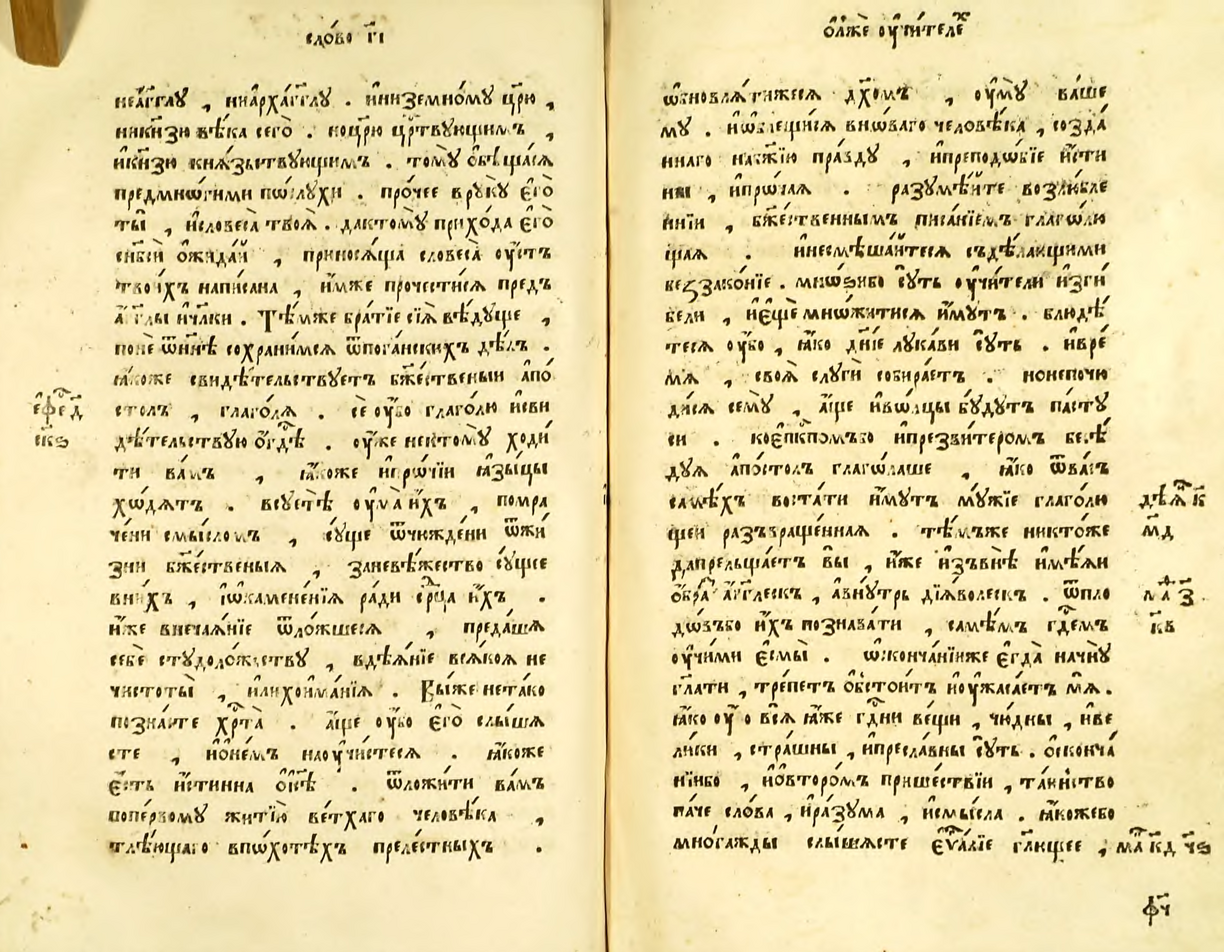 сло́во г҃і
неа҆́гг҃лꙋ , ниа҆рха́гг҃лꙋ . и҆низемно́мꙋ цр҃ю ,
никн҃зю вѣ́ка сего̀ . коцр҃ю цр҃твꙋющимъ ,
и҆кн҃зю кнѧ́зьствꙋющимъ . томꙋ̀ ѡ҆бѣща́сѧ
предмнѡ́гими пѡ́слꙋхи . про́чее врꙋ́кꙋ є҆гѡ̀
ты̀ , и҆словеса̀ твоѧ̀ . дактомꙋ̀ прихо́да є҆гѡ̀
сн҃бсѝ ѡ҆жида́й , приносѧ́ща словеса̀ ѹ҆́стъ
твои́хъ написана , и҆́мже прочести́сѧ предъ
а҆́гг҃лы и҆чл҃ки . Тѣ́мже бра́тїе сїѧ̀ вѣ́дꙋще ,
поне ѿнн҃ѣ сохрани́мсѧ ѿпога́нскихъ дѣ́лъ .
ꙗ҆́коже свидѣ́тельствꙋетъ бж҃е́ственыи а҆по
столъ , глаго́лѧ . се ѹ҆́бо глаго́лю и҆сви
дѣ́тельствꙋю ѡ҆гдⷭ҇ѣ . ѹ҆же нектомꙋ̀ ходи
ти ва́мъ , ꙗ҆́коже и҆прѡ́чїи ꙗ҆зы́цы
хѡ́дѧтъ . всꙋетѣ̀ ѹ҆ма̀ и҆́хъ , помра
че́ни смы́сломъ , сꙋ́ще ѿчюжде́ни ѿжи́
зни бж҃е́ственыѧ , заневѣ́жество сꙋ́щее
вни́хъ , і҆ѡ҆камене́нїѧ ради ср҃ца и҆́хъ .
и҆́же внеча́ѧнїе ѿло́жшесѧ , преда́шѧ
себѐ стꙋдоло́жьствꙋ , вдѣ́ѧнїе всѧ́коѧ не
чистоты̀ , и҆лихои҆ма́нїѧ . Вы́же нета́ко
позна́сте хрⷭ҇та̀ . а҆́ще ѹ҆́бо є҆гѡ̀ слы́шѧ
сте , и҆ѡ҆не́мъ наѹ҆чи́стесѧ . ꙗ҆́коже
є҆́сть и҆́стинна ѡ҆і҆с҃ѣ . ѿложи́ти ва́мъ
попе́рвомꙋ житїю̀ ве́тхаго человѣ́ка ,
тлѣ́ющаго впѡ́хотѣхъ преле́стныхъ .
є҆фе д҃
ск҃ѕ
ѡ҆лжѐ ѹ҆чи́телеⷯ
ѡ҆бновлѧ́тижесѧ дх҃омъ , ѹ҆мꙋ̀ ва́ше
мꙋ . и҆ѡ҆блещи́сѧ внѡ́ваго человѣ́ка , созда́
ннаго наб҃жїю пра́вдꙋ , и҆преподѡ́бїе и҆́сти
ны , и҆прѡ́чаѧ . разꙋмѣ́йте возлю́бле
ннїи , бж҃е́ственнымъ писа́нїемъ глагѡ́лю
щаѧ . и҆несмѣша́йтесѧ съдѣ́лающими
беззако́нїе . мнѡ́ѕибо сꙋть ѹ҆чи́тели и҆зги
бели , и҆є҆щѐ мнѡ́житисѧ и҆́мꙋтъ . блюдѣ́
тесѧ ѹ҆́бо , ꙗ҆́ко дн҃їе лꙋка́ви сꙋть . и҆вре́
мѧ , своѧ̀ слꙋгѝ собира́етъ . нонепочю
ди́сѧ семꙋ̀ , а҆́ще и҆во́лцы бꙋ́дꙋтъ пастꙋ
си . коє҆пк҃помъбо и҆презви́теромъ бесѣ́
дꙋѧ а҆по́столъ глагѡ́лаше , ꙗ҆́ко ѿва́съ
самѣ́хъ воста́ти и҆́мꙋтъ мꙋ́жїе глаго́лю
щеи развраще́ннаѧ . тѣ́мъже никто́же
дапрельща́етъ вы̀ , и҆́же и҆зъвнѣ̀ и҆мѣ́ѧи
ѡ҆́браⷥ а҆́гг҃лескъ , а҆внꙋ́трь дїѧ́волескъ . ѿпло
дѡ́въбо и҆́хъ познава́ти , самѣ́мъ гдⷭ҇емъ
ѹ҆чи́ми є҆смы̀ . ѡ҆сконча́нїиже є҆гда̀ начнꙋ̀
гл҃ати , тре́петъ ѡ҆бстои́тъ и҆ѹ҆жаса́етъ мѧ̀ .
ꙗ҆́ко ѹ҆́бо всѧ̀ ꙗ҆́же гдⷭ҇ни ве́щи , чю́дны , и҆ве
ли́ки , стра́шны , и҆пресла́вны сꙋть . ѡ҆сконча́
нїибо , и҆ѡ҆второ́мъ прише́ствїи , та́инство
па́че сло́ва , и҆ра́зꙋма , и҆смы́сла . ꙗ҆́кожебо
мно́гажды слы́шѧсте є҆ѵⷢ҇алїе гл҃ющее ,
дѣѧⷩ҇ к҃
м҃д
маⷴ҇ з҃
к҃в
маⷴ҇ к҃д ч҃ѕ
ф҃ч